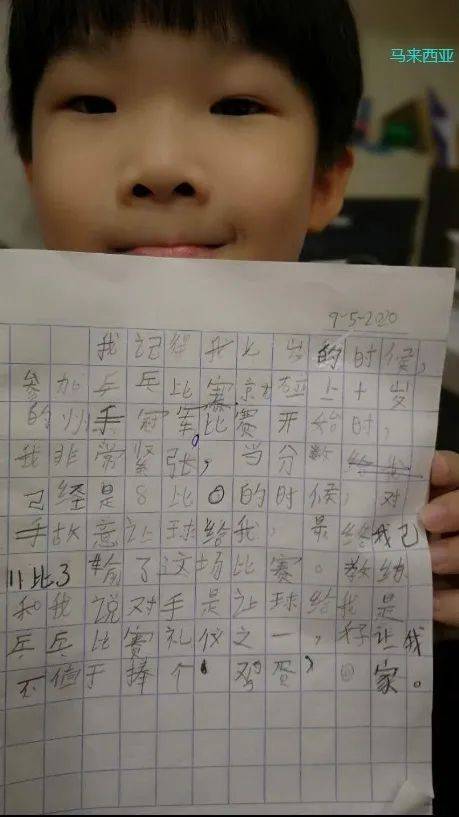 马来西亚
9-5-2020
我记得我七岁的时候,
参加乒乓比赛.就碰上十岁
的州手冠军比赛开始时,
我非常紧张,当分数
已经是8比0的时候,对
手故意让球给我,最终我已
11比3输了这场比赛。教练
和我说对手是让球给我是
乒乓比赛礼仪之一,好让我
不值于捧个鸡蛋,家。